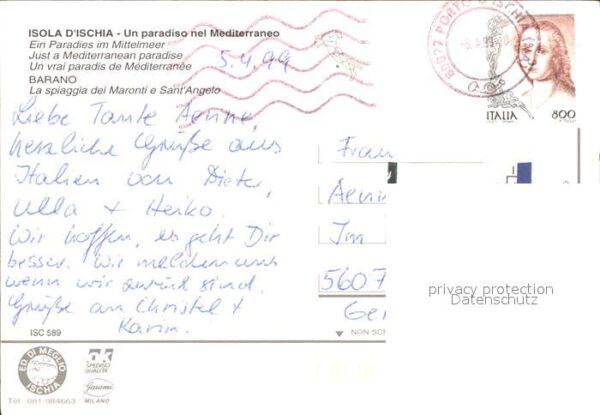 ISOLA D'ISCHIA - Un paradiso nel Mediterraneo
Ein Paradies im Mittelmeer
Just a Mediterranean paradise
Un vrai paradis de Méditerranée
BARANO
La spiaggia dei Maronti e Sant'Angelo
5.4.99
80077 PORTO D'ISCHIA
ITALIA 800
Liebe Tante Aenne,
herzliche Grüße aus
Italien von Dieter,
Ulla + Heiko.
Wir hoffen, es geht Dir
besser. Wir melden uns
wenn wir zurück sind.
Grüße an Christel +
Karin.
Frau
Aenn
Im
5607
Ger
privacy protection
Datenschutz
ISC 589
NON SCR
ED. DI MEGLIO
ISCHIA
Tel. 081-984663
OK
SPEDISCI
QUALITÀ
Garami
MILANO